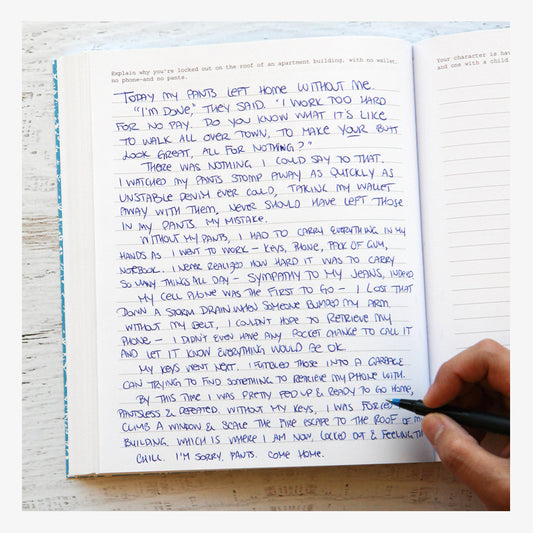 Explain why you're locked out on the roof of an apartment building, with no wallet,
no phone—and no pants.
TODAY MY PANTS LEFT HOME WITHOUT ME.
"I'M DONE," THEY SAID. "I WORK TOO HARD
FOR NO PAY. DO YOU KNOW WHAT IT'S LIKE
TO WALK ALL OVER TOWN, TO MAKE YOUR BUTT
LOOK GREAT, ALL FOR NOTHING?"
THERE WAS NOTHING I COULD SAY TO THAT.
I WATCHED MY PANTS STOMP AWAY AS QUICKLY AS
UNSTABLE DENIM EVER COULD, TAKING MY WALLET
AWAY WITH THEM, NEVER SHOULD HAVE LEFT THOSE
IN MY PANTS. MY MISTAKE.
WITHOUT MY PANTS, I HAD TO CARRY EVERYTHING IN MY
HANDS AS I WENT TO WORK – KEYS, PHONE, PACK OF GUM,
NOTEBOOK. I NEVER REALIZED HOW HARD IT WAS TO CARRY
SO MANY THINGS ALL DAY – SYMPATHY TO MY JEANS, INDEED
MY CELL PHONE WAS THE FIRST TO GO – I LOST THAT
DOWN A STORM DRAIN WHEN SOMEONE BUMPED MY ARM.
WITHOUT MY BELT, I COULDN'T HOPE TO RETRIEVE MY
PHONE – I DIDN'T EVEN HAVE ANY POCKET CHANGE TO CALL IT
AND LET IT KNOW EVERYTHING WOULD BE OK.
MY KEYS WENT NEXT. I FUMBLED THOSE INTO A GARBAGE
CAN TRYING TO FIND SOMETHING TO RETRIEVE MY PHONE WITH.
BY THIS TIME I WAS PRETTY FED UP & READY TO GO HOME,
PANTSLESS & DEFEATED. WITHOUT MY KEYS, I WAS FORCED
CLIMB A WINDOW & SCALE THE FIRE ESCAPE TO THE ROOF OF M
BUILDING. WHICH IS WHERE I AM NOW, LOCKED OUT & FEELING TH
CHILL. I'M SORRY, PANTS. COME HOME.
Your character is hav
and one with a child